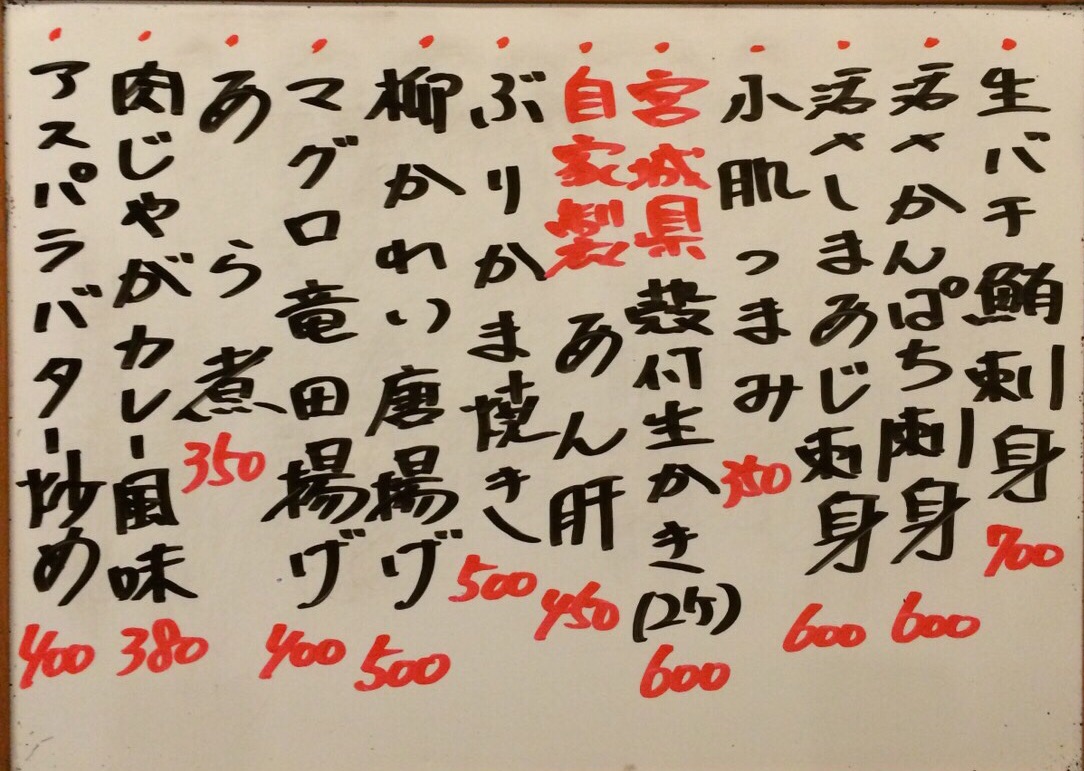 生バチ鮪刺身 700
活〆かんぱち刺身 600
活〆しまあじ刺身 600
小肌つまみ 350
宮城県殻付生かき(2ケ) 600
自家製あん肝 450
ぶりかま焼き 500
柳かれい唐揚げ 500
マグロ竜田揚げ 400
あら煮 350
肉じゃがカレー風味 380
アスパラバター炒め 400